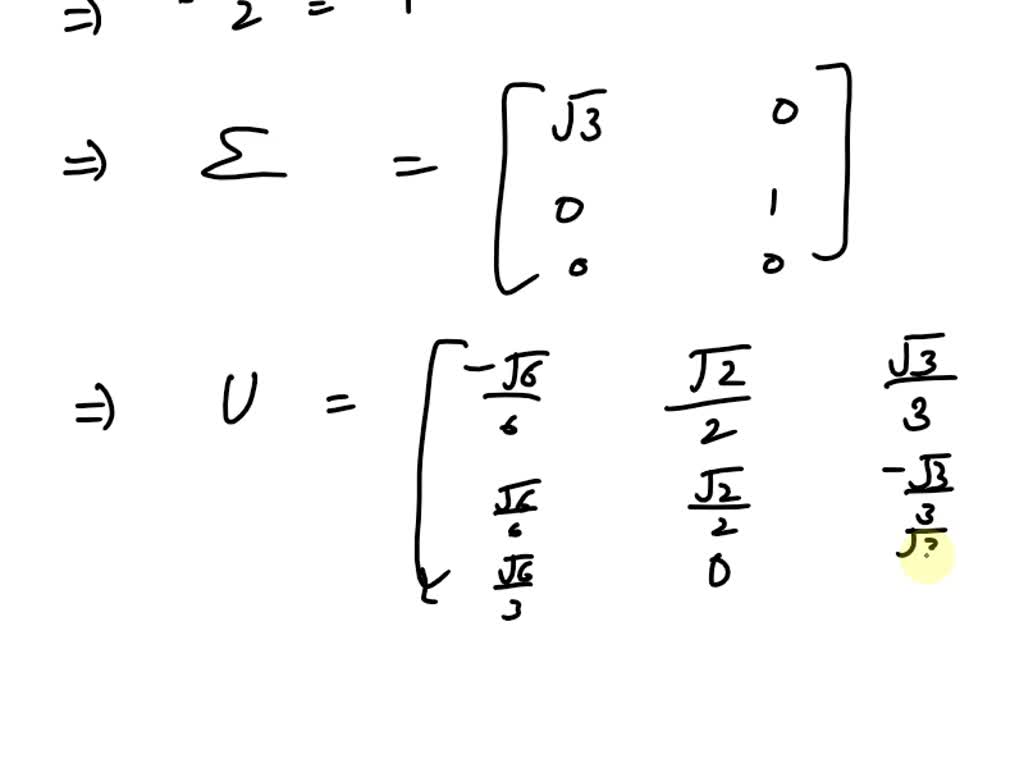 ⇒ 2 =
⇒ Σ = [ √3 0
0 1
0 0 ]
⇒ U = [ -√6/6 √2/2 √3/3
√6/6 √2/2 -√3/3
√6/3 0 √3